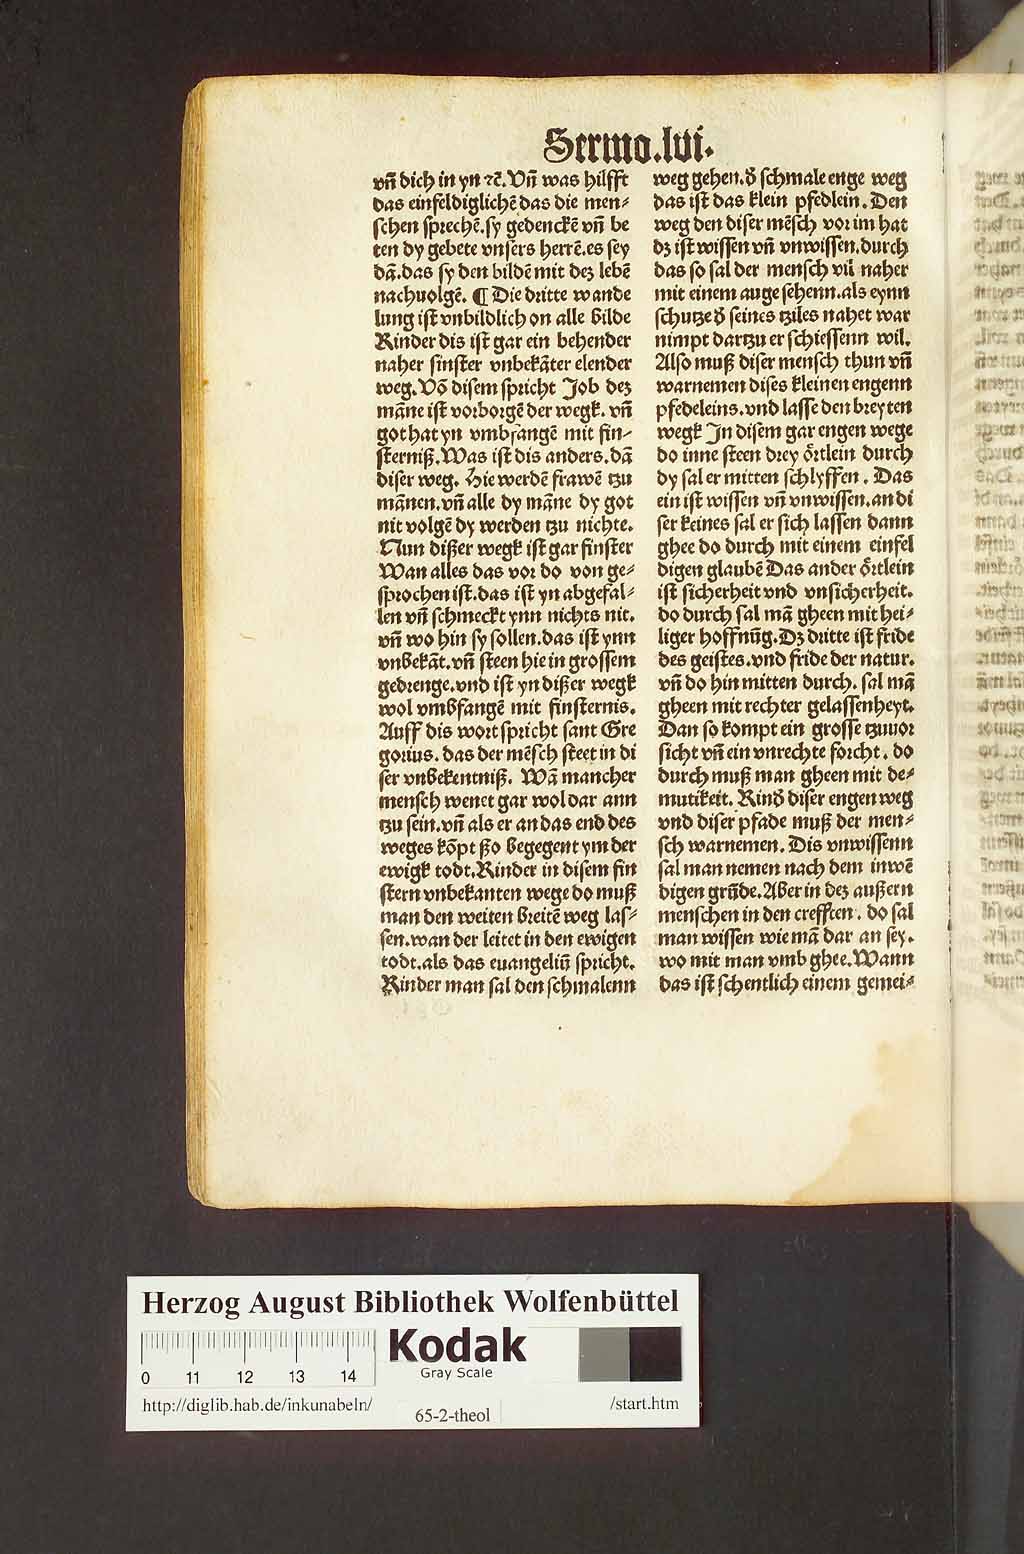 Sermo.lvi.
vn̄ dich in yn ⁊c̄. Vn̄ was hilfft
das einfeldiglichē das die men⸗
schen sprechē. sy gedenckē vn̄ be
ten dy gebete vnsers herrē. es sey
dā. das sy den bildē mit dez lebē
nachuolgē. ¶ Die dritte wande
lung ist vnbildlich on alle bilde
Rinder dis ist gar ein behender
naher finster vnbekāter elender
weg. Vō disem spricht Job dez
māne ist vorborgē der wegk. vn̄
got hat yn vmbfangē mit fin⸗
sterniß. Was ist dis anders. dā
diser weg. Hie werdē frawē tzu
mānen. vn̄ alle dy māne dy got
nit volgē dy werden tzu nichte.
Nun dißer wegk ist gar finster
Wan alles das vor do von ge⸗
sprochen ist. das ist yn abgefal⸗
len vn̄ schmeckt ynn nichts nit.
vn̄ wo hin sy sollen. das ist ynn
vnbekāt. vn̄ steen hie in grossem
gedrenge. vnd ist yn dißer wegk
wol vmbfangē mit finsternis.
Auff dis wort spricht sant Gre
gorius. das der mēsch steet in di
ser vnbekentniß. Wā mancher
mensch wenet gar wol dar ann
tzu sein. vn̄ als er an das end des
weges kōpt ßo begegent ym der
ewigk todt. Rinder in disem fin
stern vnbekanten wege do muß
man den weiten breitē weg las⸗
sen. wan der leitet in den ewigen
todt. als das euangeliū spricht.
Rinder man sal den schmalenn
weg gehen. ď schmale enge weg
das ist das klein pfedlein. Den
weg den diser mēsch vor im hat
dz ist wissen vn̄ vnwissen. durch
das so sal der mensch vil naher
mit einem auge sehenn. als eynn
schutze ď seines tziles nahet war
nimpt dartzu er schiessenn wil.
Also muß diser mensch thun vn̄
warnemen dises kleinen engenn
pfedeleins. vnd lasse den breyten
wegk In disem gar engen wege
do inne steen drey örtlein durch
dy sal er mitten schlyffen. Das
ein ist wissen vn̄ vnwissen. an di
ser keines sal er sich lassen dann
ghee do durch mit einem einfel
digen glaubē Das ander örtlein
ist sicherheit vnd vnsicherheit.
do durch sal mā gheen mit hei⸗
liger hoffnūg. Dz dritte ist fride
des geistes. vnd fride der natur.
vn̄ do hin mitten durch. sal mā
gheen mit rechter gelassenheyt.
Dan so kompt ein grosse tzuuor
sicht vn̄ ein vnrechte forcht. do
durch muß man gheen mit de⸗
mutikeit. Rinď diser engen weg
vnd diser pfade muß der men⸗
sch warnemen. Dis vnwissenn
sal man nemen nach dem inwē
digen grūde. Aber in dez außern
menschen in den crefften. do sal
man wissen wie mā dar an sey.
wo mit man vmb ghee. Wann
das ist schentlich einem gemei⸗
Herzog August Bibliothek Wolfenbüttel
Kodak
Gray Scale
0 11 12 13 14
http://diglib.hab.de/inkunabeln/ 65-2-theol /start.htm